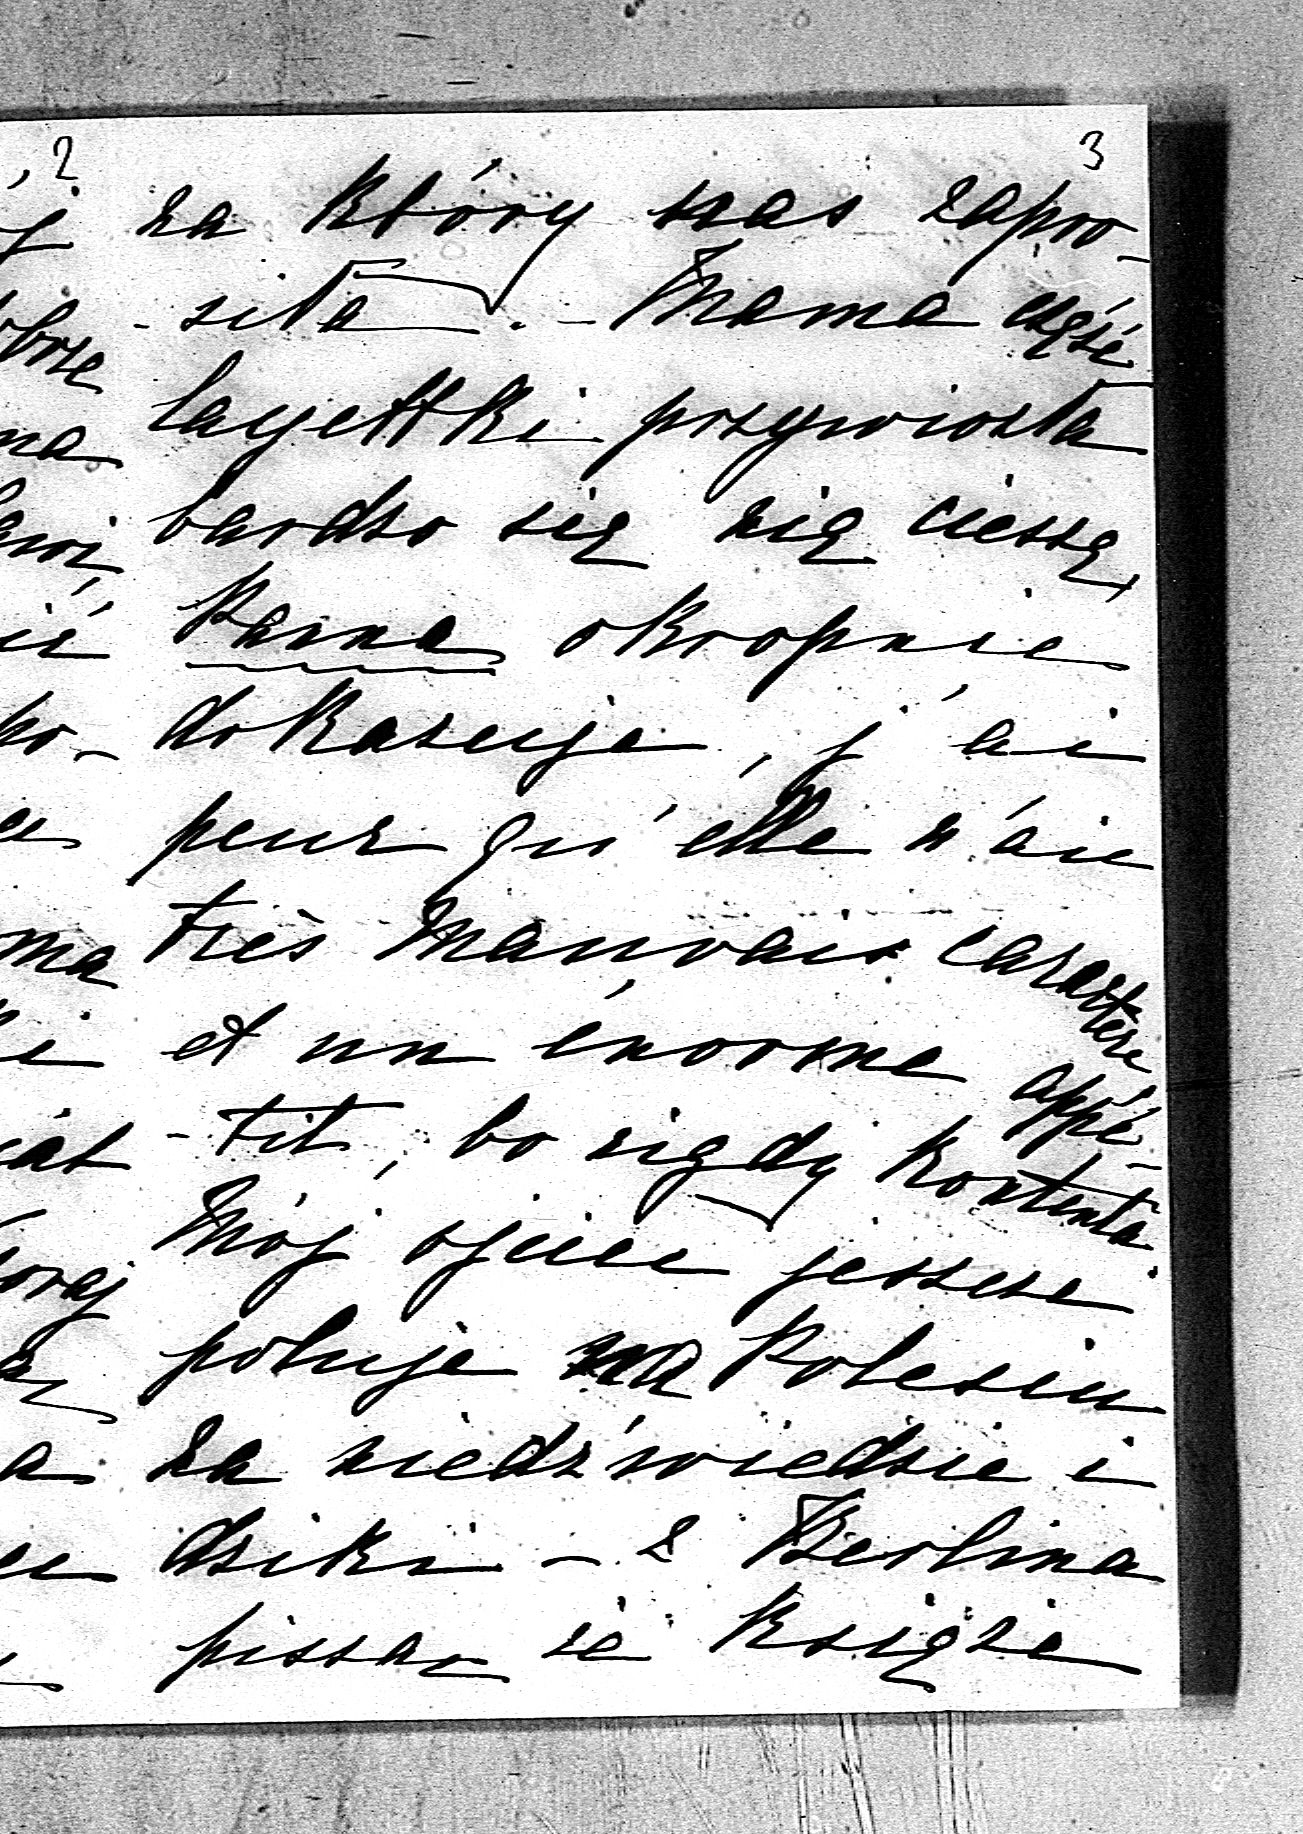 2
3
na który nas zapro-
-siła. - Mama część
layettki przywiozła
bardzo się nią cieszę,
Panna okropnie
dokazuje, j'ai
peur qu'elle n'aie
très mauvais caractère
et un énorme appé-
-tit, bo nigdy kontenta.
Mój ojciec jeszcze
poluje na Polesiu
na niedźwiedzie i
dziki - z Berlina
piszą że Księże